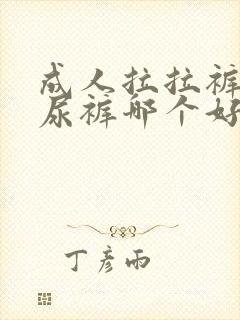 成人拉拉裤
尿裤哪个好
丁彦雨